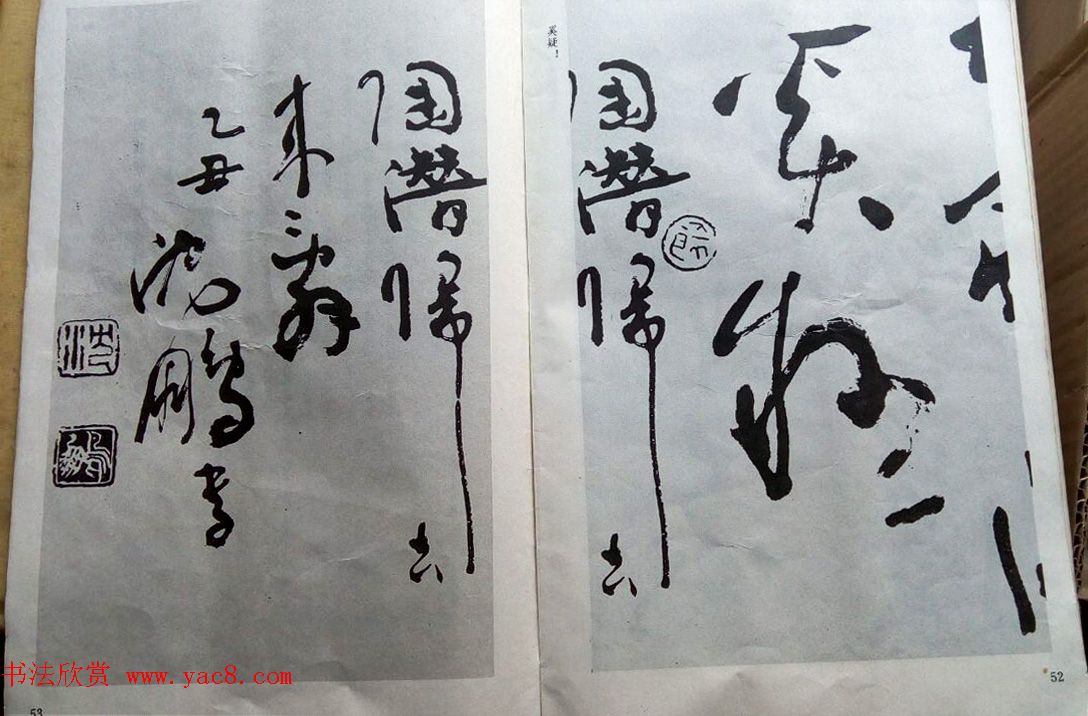 奚疑！
奚疑
陶潛歸去
52
陶潛歸去
来辭
乙丑
沈鵬書
沈
鵬
53
书法欣赏 www.yac8.com